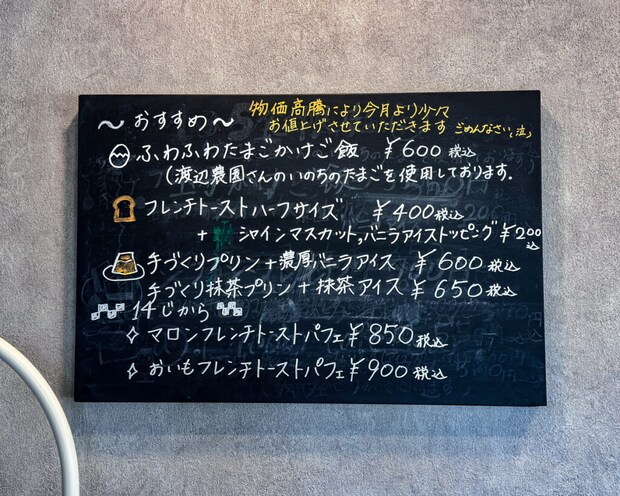 物価高騰により今月より少々
〜おすすめ〜 お値上げさせていただきます ごめんなさい(泣)
ふわふわたまごかけご飯 ¥600 税込
(渡辺農園さんのいのちのたまごを使用しております.
フレンチトーストハーフサイズ ¥400税込
+ シャインマスカット,バニラアイストッピング ¥200税込
手づくりプリン+濃厚バニラアイス ¥600税込
手づくり抹茶プリン+抹茶アイス ¥650税込
14じから
マロンフレンチトーストパフェ¥850税込
おいもフレンチトーストパフェ¥900税込